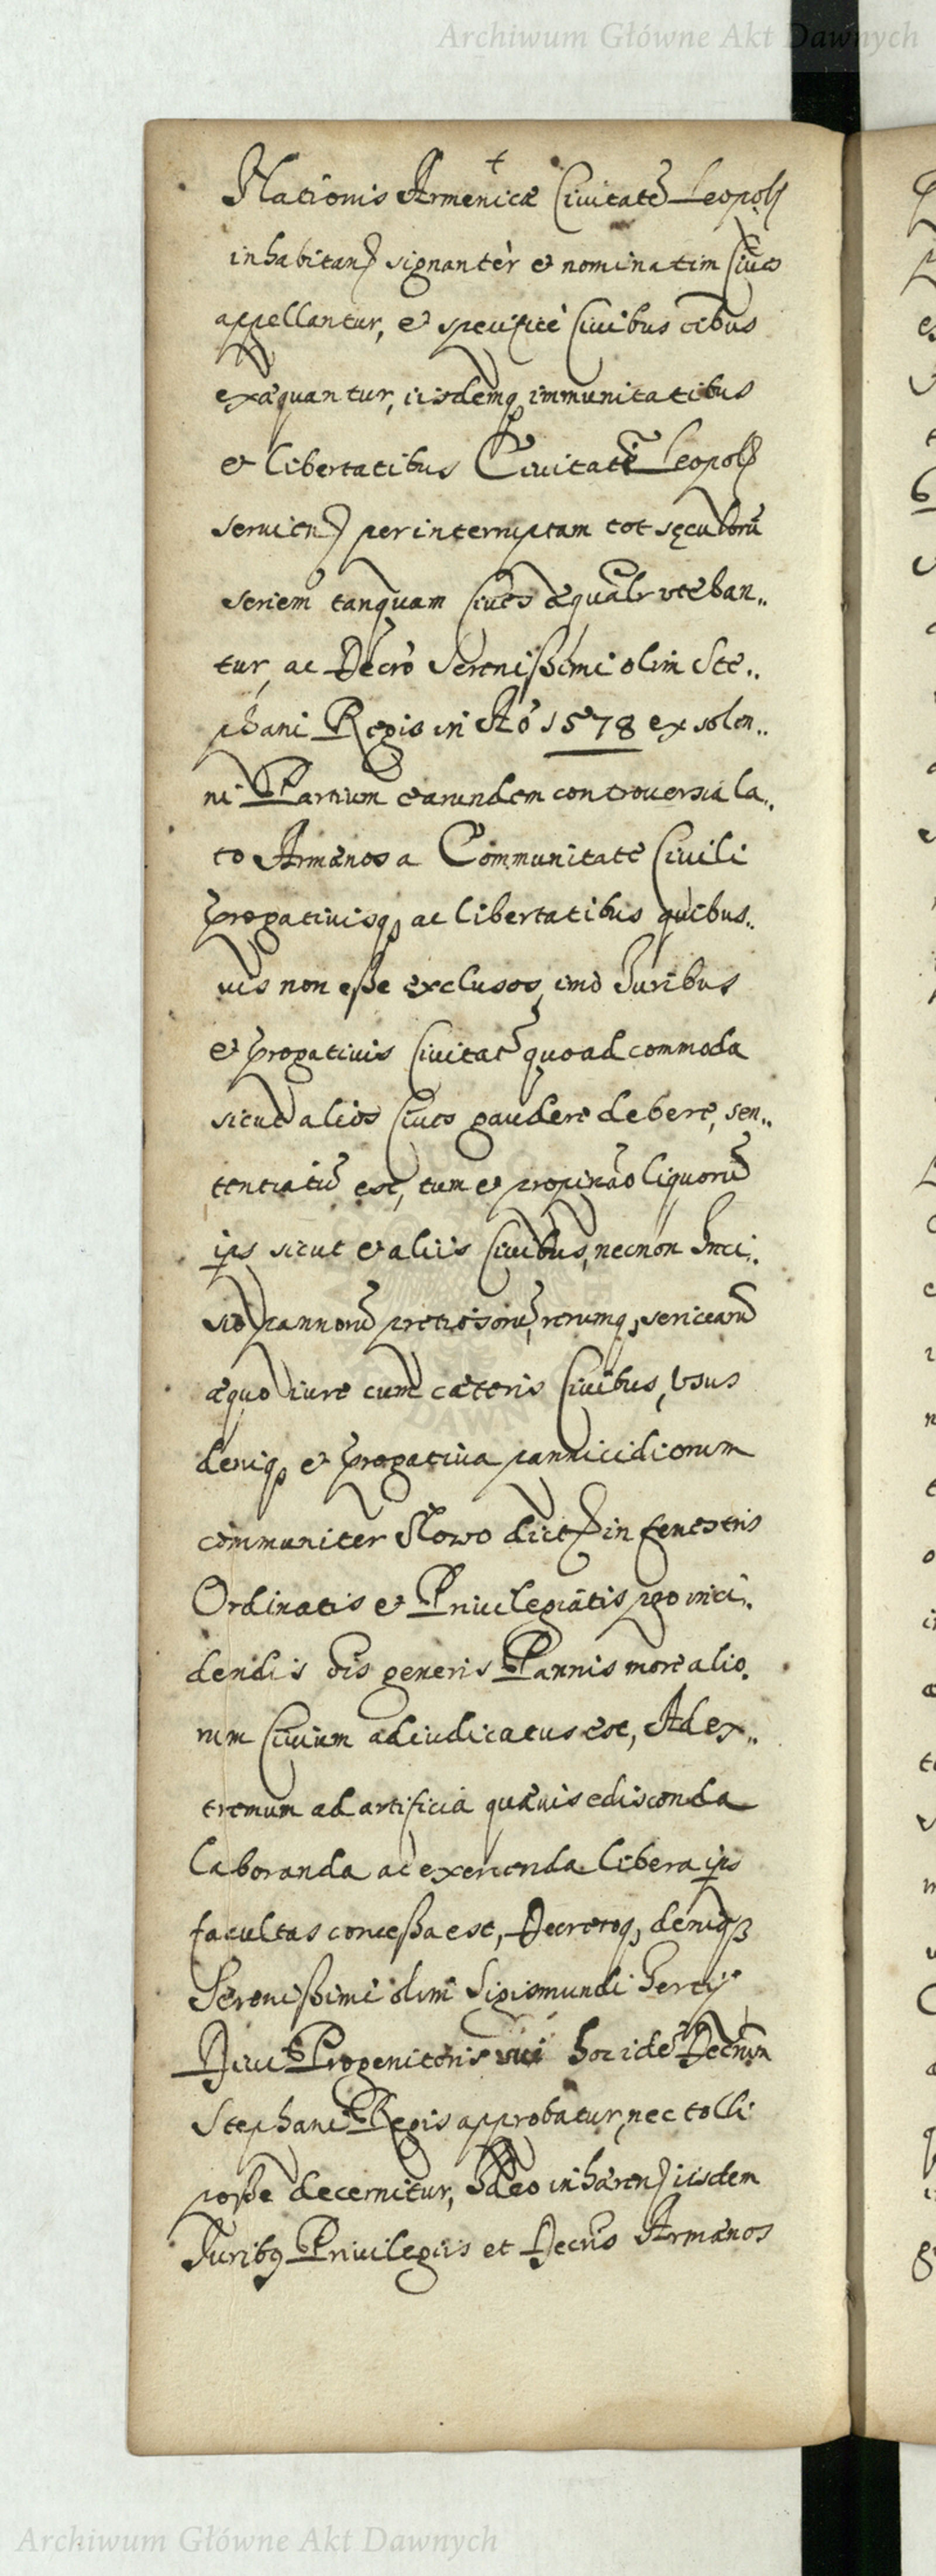 Archiwum Główne Akt Dawnych
Nationis Armenicæ Civitatē Leopol
inhabitan signantèr et nominatim Cives
appellantur, et specifice Civibus oībus
exæquantur, iisdemq, immunitatibus
et libertatibus Civitatē Leopol
servien per interruptam tot sęculorū
seriem tanquam Cives æqualr uteban„
tur, ac Decro Serenißimi olim Ste„
phani Regis in Ao 1578 ex solen„
ni Partium earundem controversia la„
to Armænos a Communitate Civili
prrogativisq, ac libertatibus quibus„
vis non eße exclusos, imo Juribus
et prrogativis Civitat quoad commoda
sicut alios Cives gaudere debere, sen„
tentiatū est, tum et propinão liquorū
ips sicut et aliis Civibus, necnon Inci„
sio pannorū pretiosorū, rerumq, sericearū
æquo iure cum cæteris Civibus, usus
deniq, et prrogativa pannicidiorum
communiter Słowo dict in fenestris
Ordinatis et Privilegiatis pro inci„
dendis ōis generis Pannis more alio„
rum Civium adiudicatus est, Ad ex„
tremum ad artificia quævis ediscenda
laboranda ac exercenda libera ips
facultas conceßa est, Decretoq, deniq
Serenißimi olim Sigismundi Tertij
Divi Progenitoris hoc idē Decrum
Stephani Regis approbatur, nec tolli
poße decernitur, Ideo inhæren iisdem
Juribq Privilegiis et Decris Armænos
Archiwum Główne Akt Dawnych